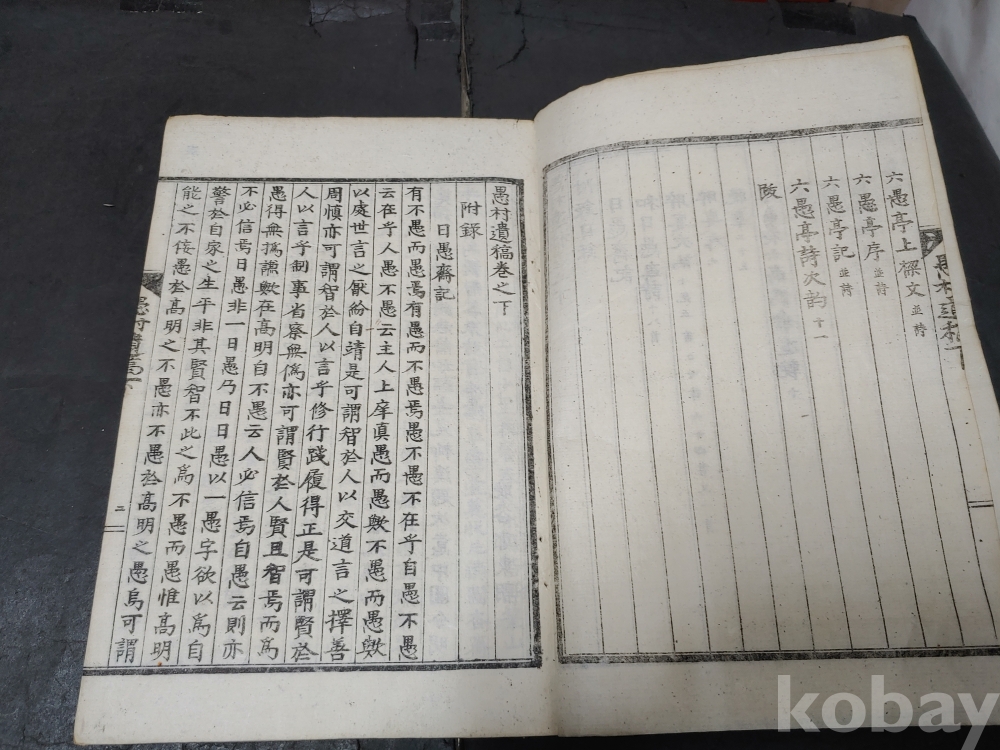 六愚亭上樑文 並詩
六愚亭序 並詩
六愚亭記 並詩
六愚亭詩次韵 十一
跋
愚村遺稿卷之下
附錄
日愚齋記
有不愚而愚焉有愚而不愚焉愚不愚不在乎自愚不愚
云在乎人愚不愚云主人上庠眞愚而愚歟不愚而愚歟
以處世言之厭紛自靖是可謂智於人以交道言之擇善
周愼亦可謂智於人以言乎修行踐履得正是可謂賢於
人以言乎制事省察無僞亦可謂賢於人賢且智焉而爲
愚得無撝謙歟在高明自不愚云人必信焉自愚云則亦
不必信焉日愚非一日愚乃日日愚以一愚字欲以爲自
警於自家之生平非其賢智不此之爲不愚而愚惟高明
能之不佞愚於高明之不愚亦不愚於高明之愚烏可謂
愚村遺稿 下
二
kobay